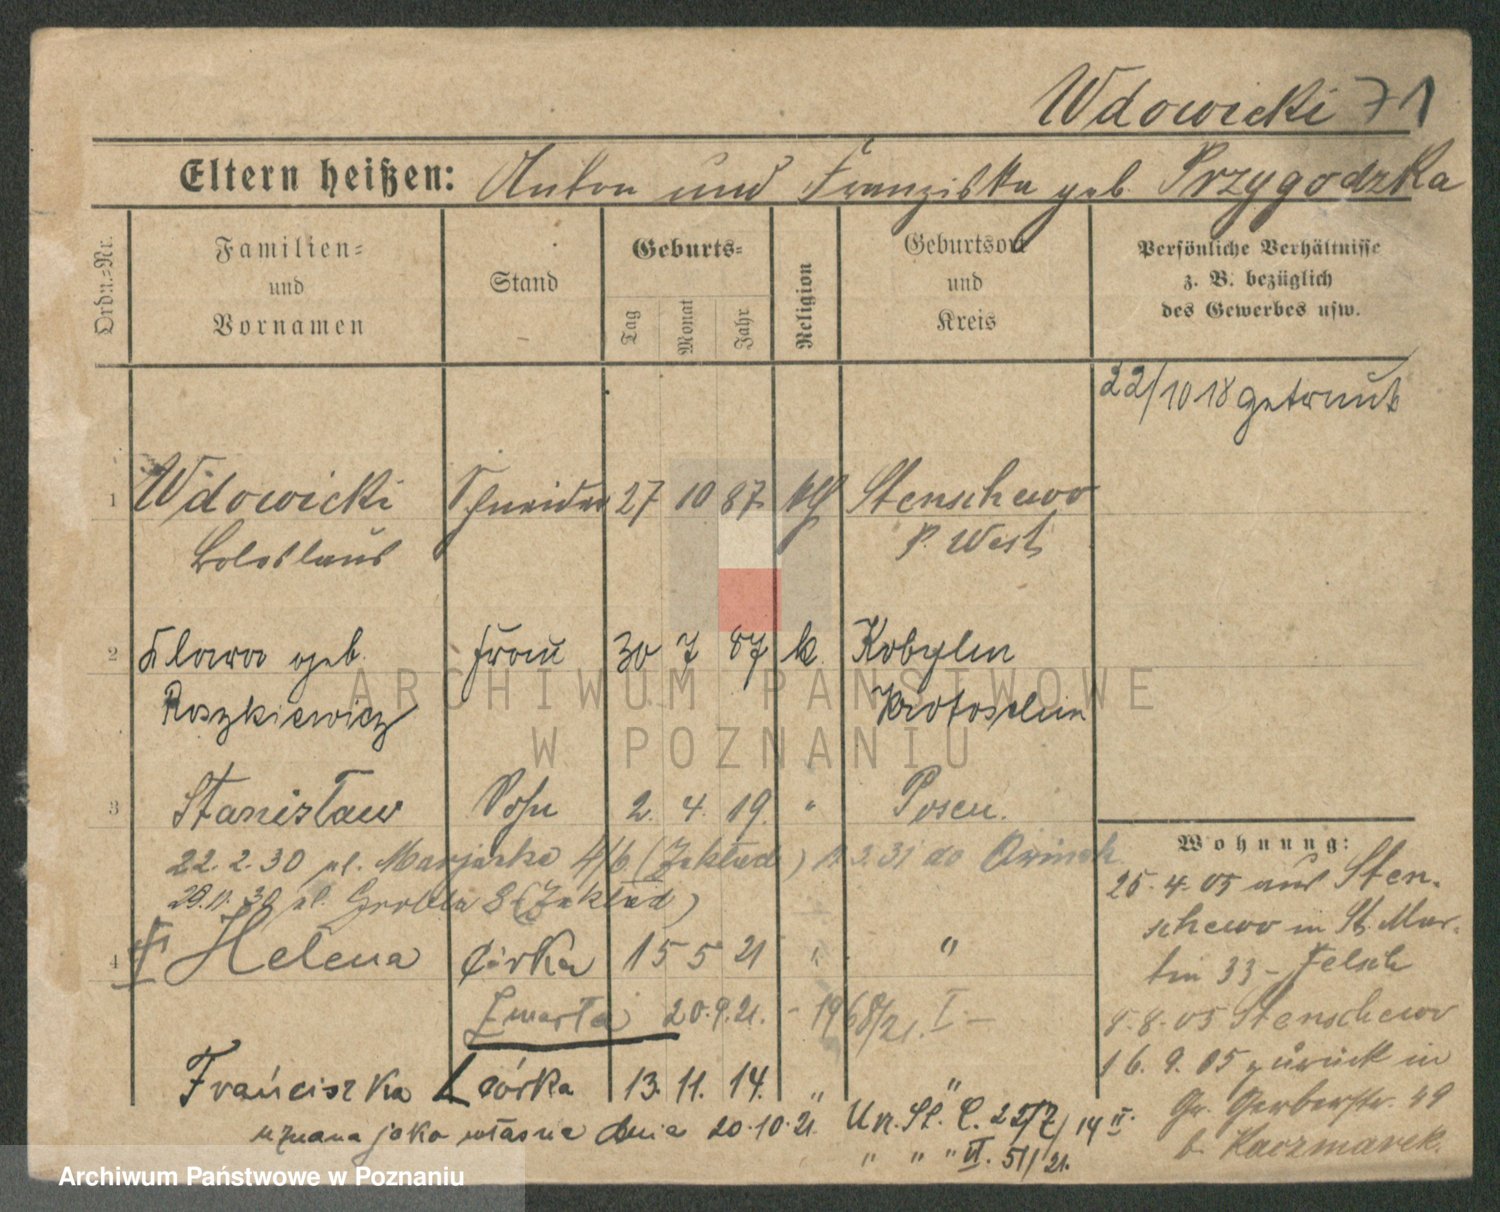 Wdowicki 71
Eltern heißen: Anton und Franziska geb. Przygodzka
Ordn.=Nr.
Familien= und Vornamen
Stand
Geburts=
Tag
Monat
Jahr
Religion
Geburtsort und Kreis
Persönliche Verhältnisse
z. B. bezüglich
des Gewerbes usw.
22/10 18 getraut
1 Wdowicki Schneider 27 10 87 kth Stenschewo
Boleslaus P. West
2 Klara geb. Frau 30 7 87 k. Kobylin
Roszkiewicz Krotoschin
3 Stanisław Sohn 2. 4. 19. " Posen.
22. 2. 30 pl. Marjacki 4/6 (Zakład) 2 31 do Owinsk
29.11.30 pl. 8 (Zakład)
4 Helena córka 15 5 21 " "
Zmarła 20.9.21. - 1968/21. I -
Franciszka córka 13. 11. 14. " "
uznana jako własna dnia 20.10.21. Ur. St. C. 2257/14 II.
" " " VI. 51/21.
Wohnung:
25.4.05 aus Sten-
schewo in St. Mar-
tin 33 - Felsch
8.8.05 Stenschewo
16.9.05 zurück in
Gr. Gerberstr. 49
b. Kaczmarek.
ARCHIWUM PAŃSTWOWE
W POZNANIU
Archiwum Państwowe w Poznaniu